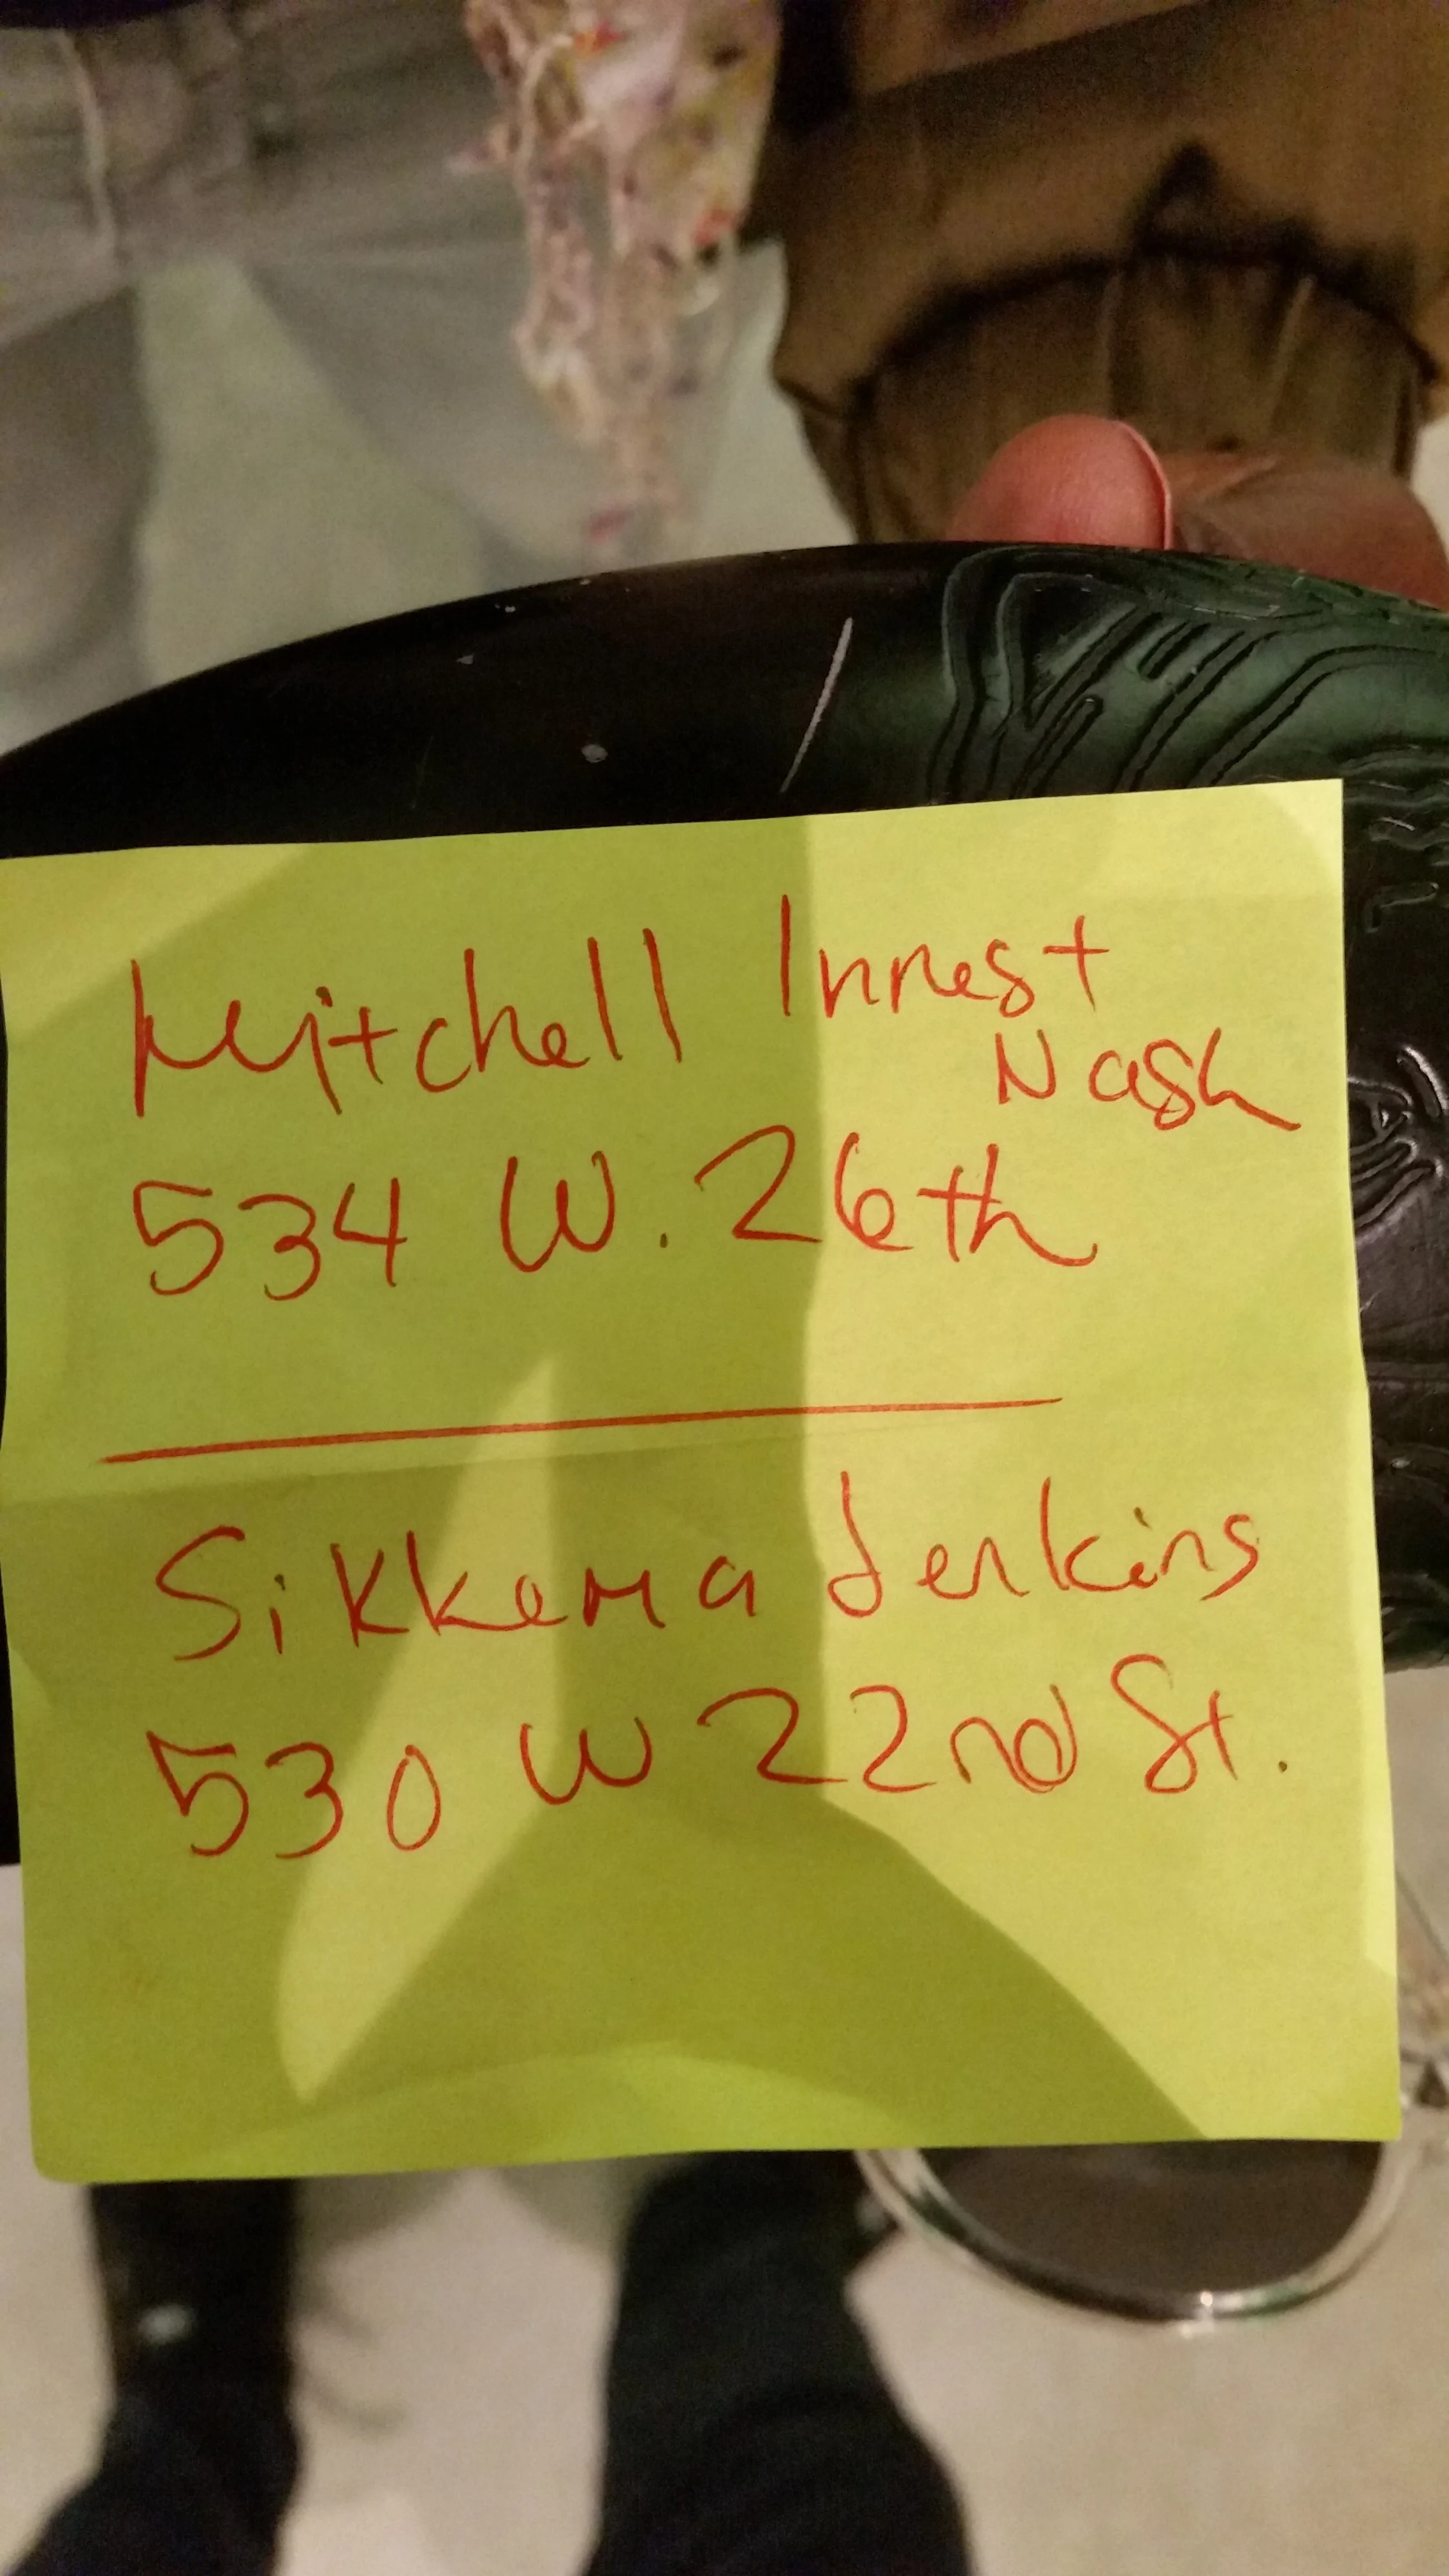 Mitchell Innes +
Nash
534 W. 26th
Sikkema Jenkins
530 W 22nd St.